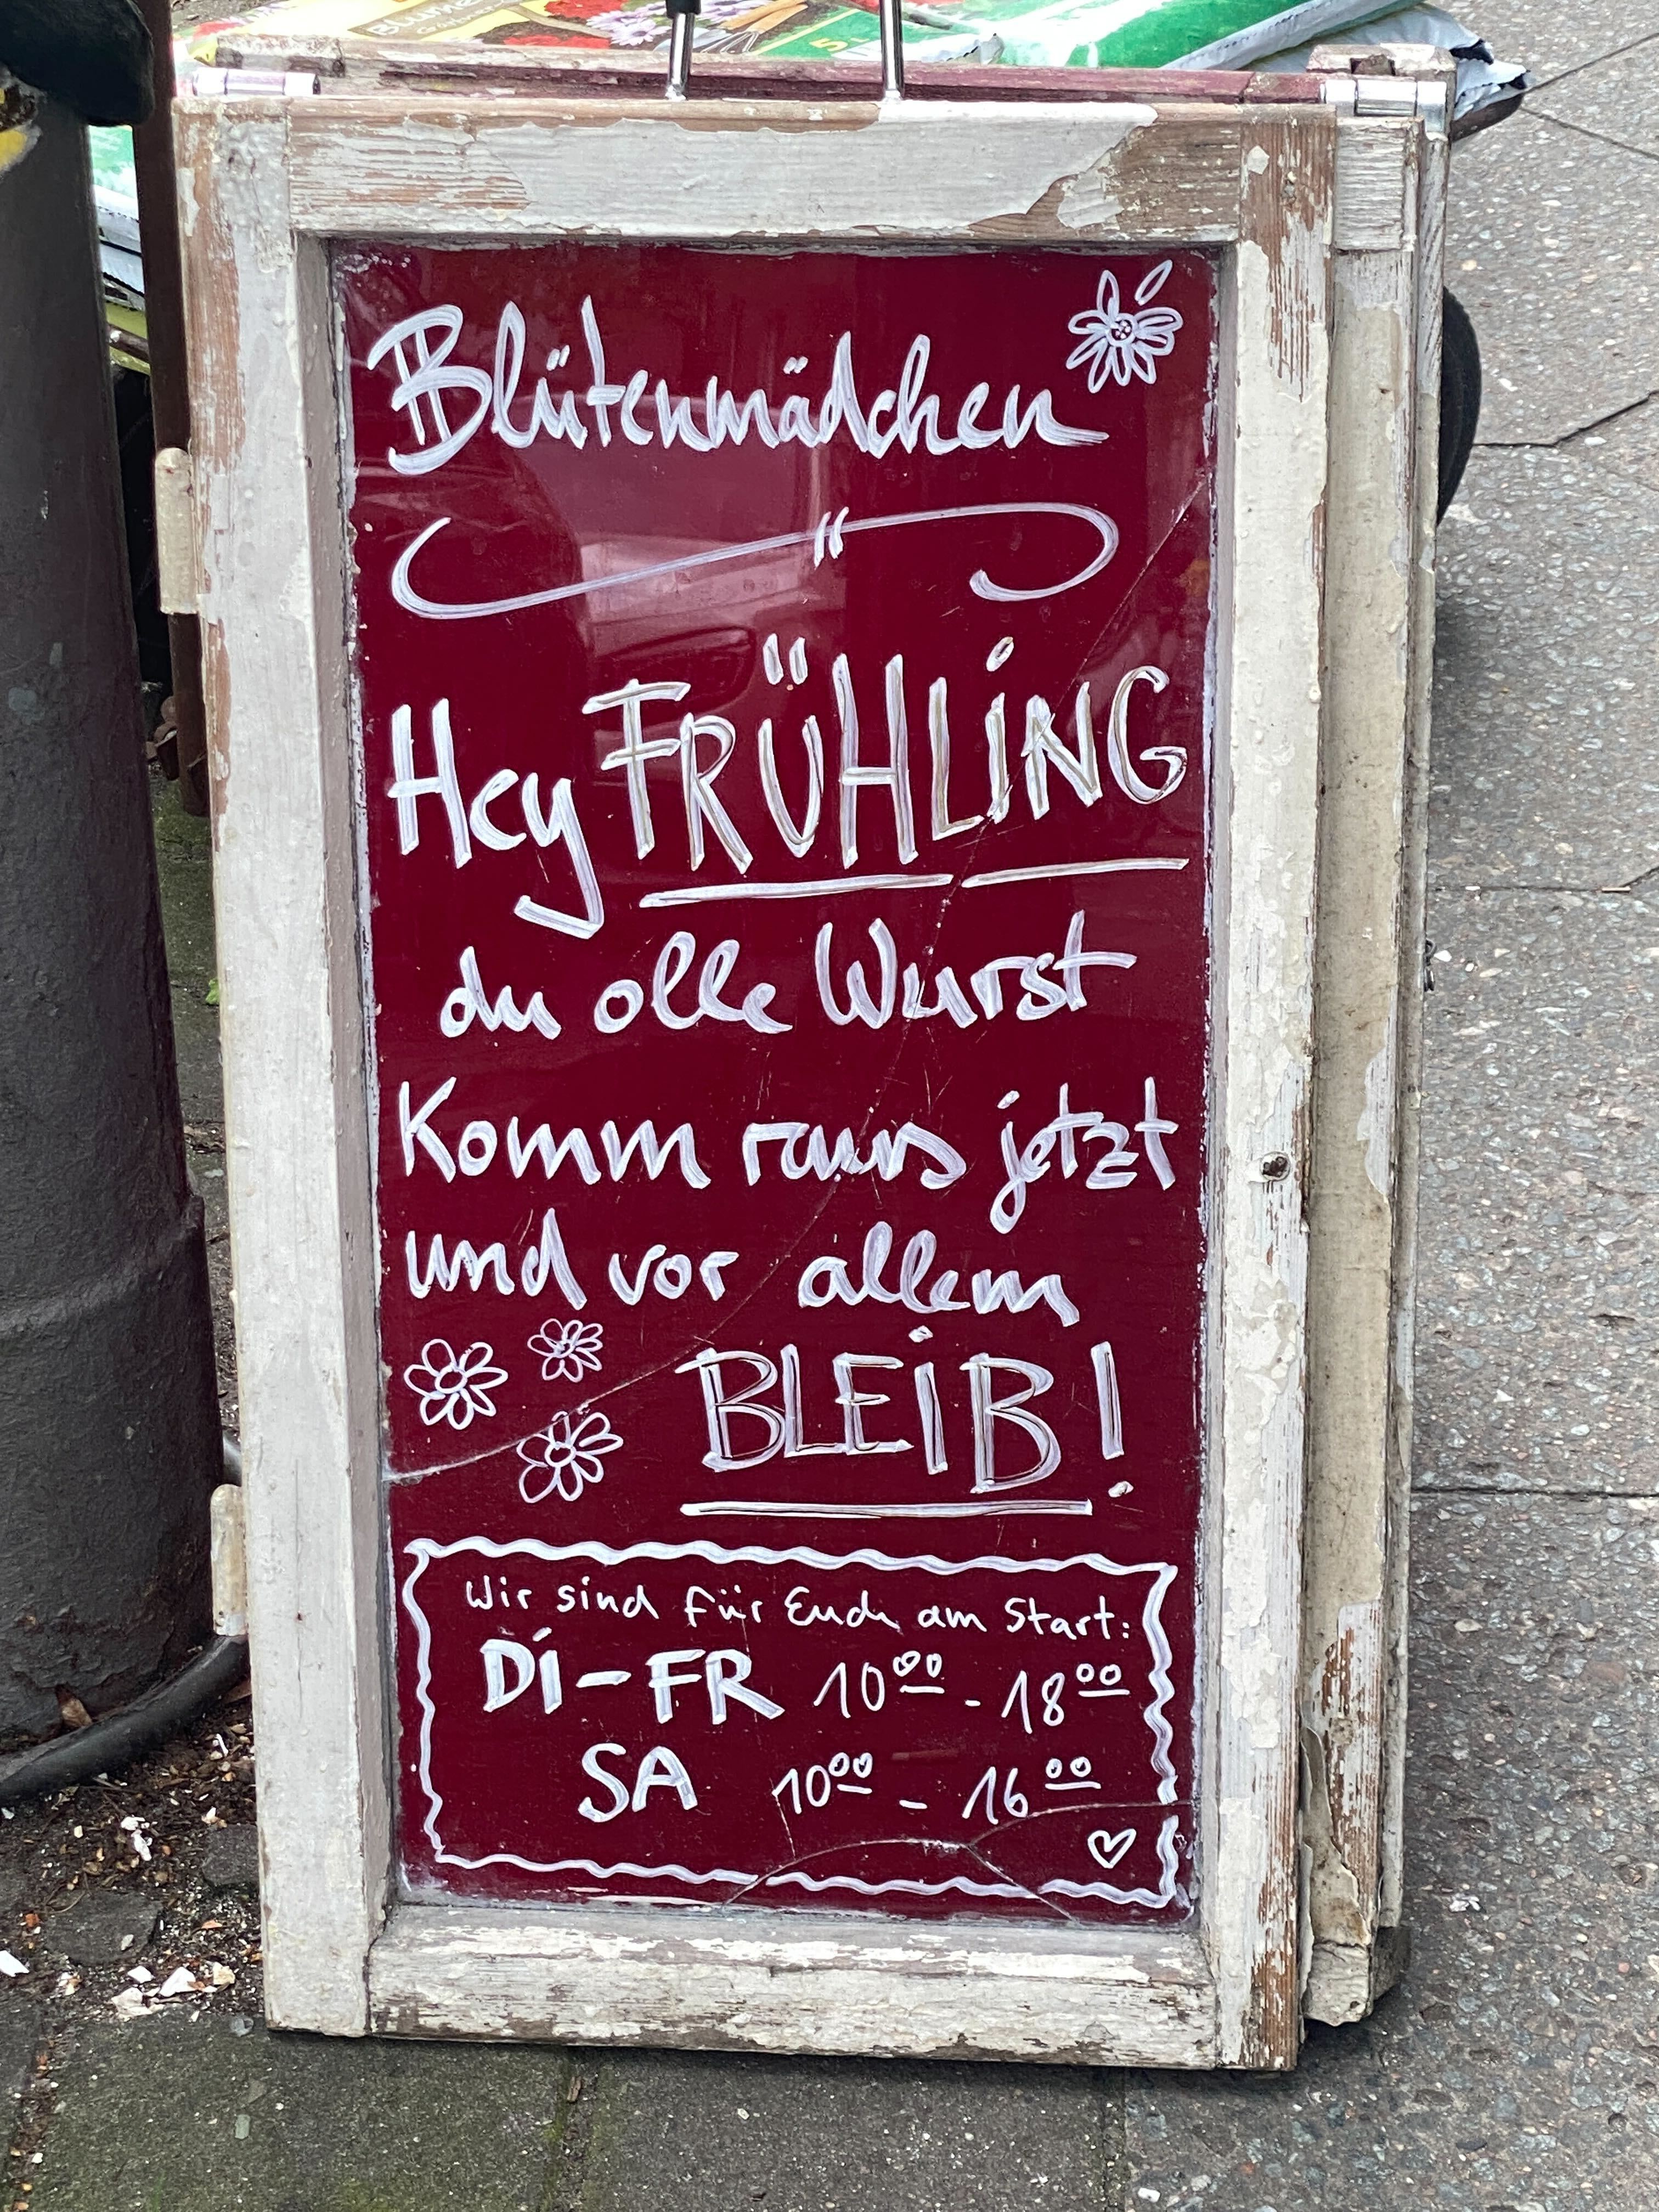 BLUME
5.-
Blütenmädchen
Hey FRÜHLiNG
du olle Wurst
Komm raus jetzt
und vor allem
BLEiB!
Wir sind für Euch am Start:
Di-FR 10⁰⁰ - 18⁰⁰
SA 10⁰⁰ - 16⁰⁰